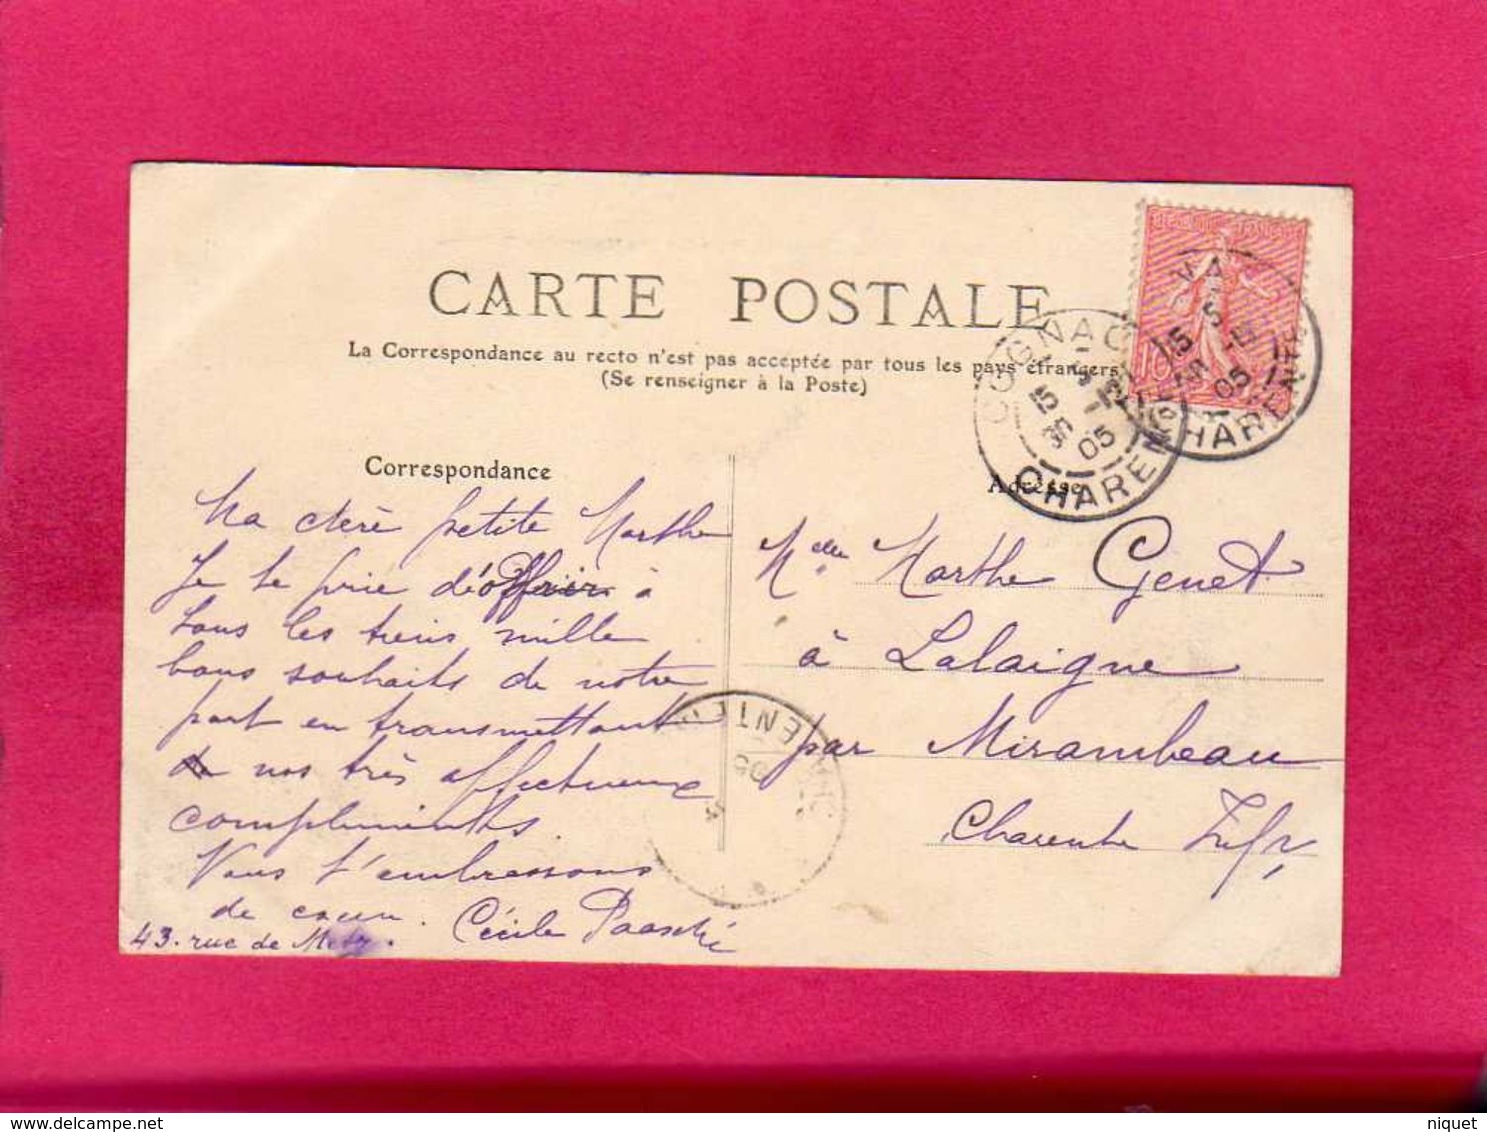 CARTE POSTALE
La Correspondance au recto n'est pas acceptée par tous les pays étrangers
(Se renseigner à la Poste)
Correspondance
Adresse
COGNAC
15
5 -1
05
CHARENTE
15
5 -1
05
CHARENTE
10
Ma chère petite Marthe
Je te prie d'offrir à
tous les tiens mille
bons souhaits de notre
part en transmettant
nos très affectueux
compliments.
Nous t'embrassons
de coeur. Cécile
43. rue de Metz.
Melle Marthe Genet
à Lalaigne
par Mirambeau
Charente Infre
05
niquet